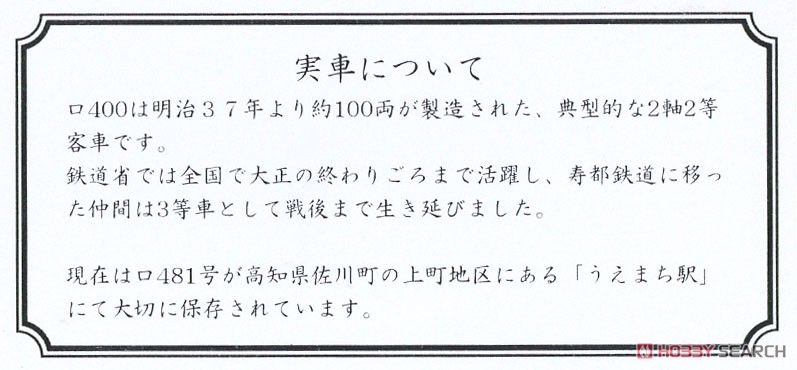 実車について
ロ400は明治３７年より約100両が製造された、典型的な2軸2等
客車です。
鉄道省では全国で大正の終わりごろまで活躍し、寿都鉄道に移っ
た仲間は3等車として戦後まで生き延びました。
現在はロ481号が高知県佐川町の上町地区にある「うえまち駅」
にて大切に保存されています。
HOBBY SEARCH